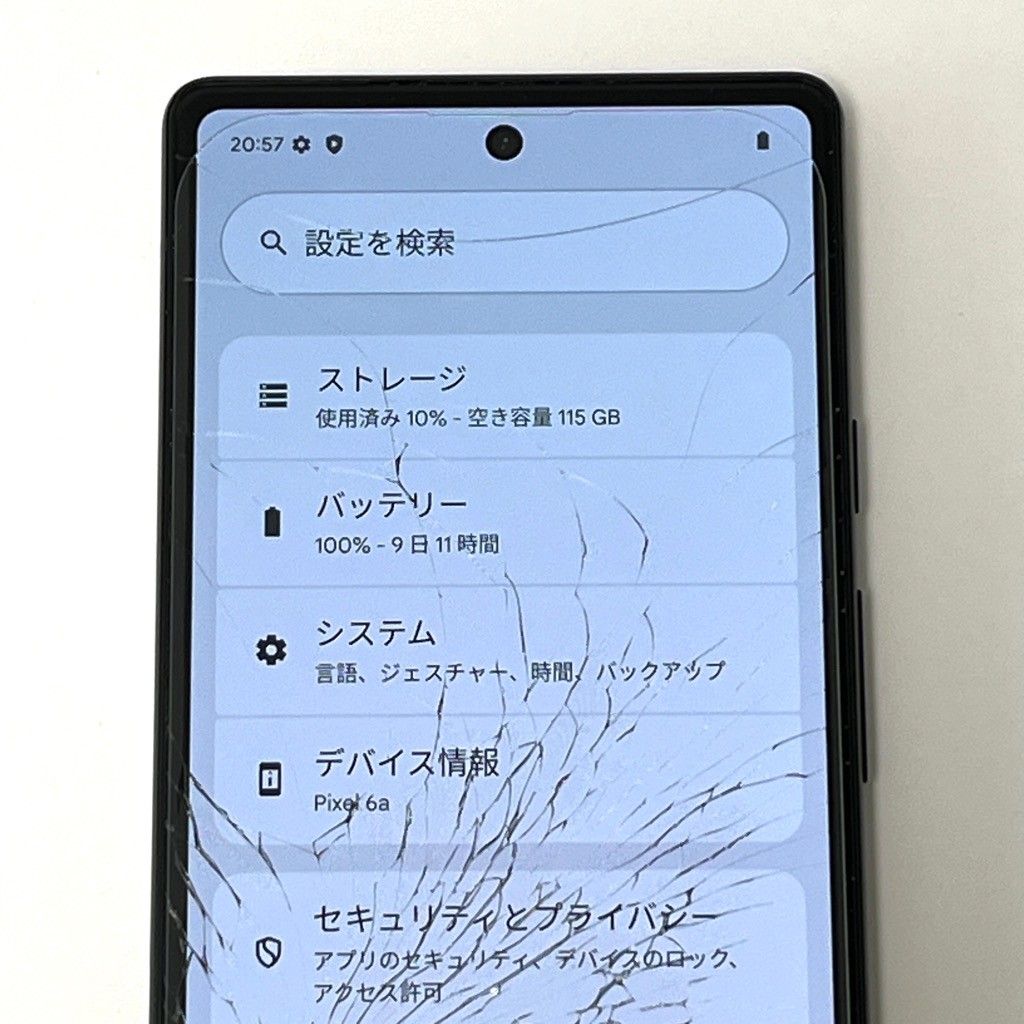 20:57
設定を検索
ストレージ
使用済み 10% - 空き容量 115 GB
バッテリー
100% - 9 日 11 時間
システム
言語、ジェスチャー、時間、バックアップ
デバイス情報
Pixel 6a
セキュリティとプライバシー
アプリのセキュリティ、デバイスのロック、
アクセス許可